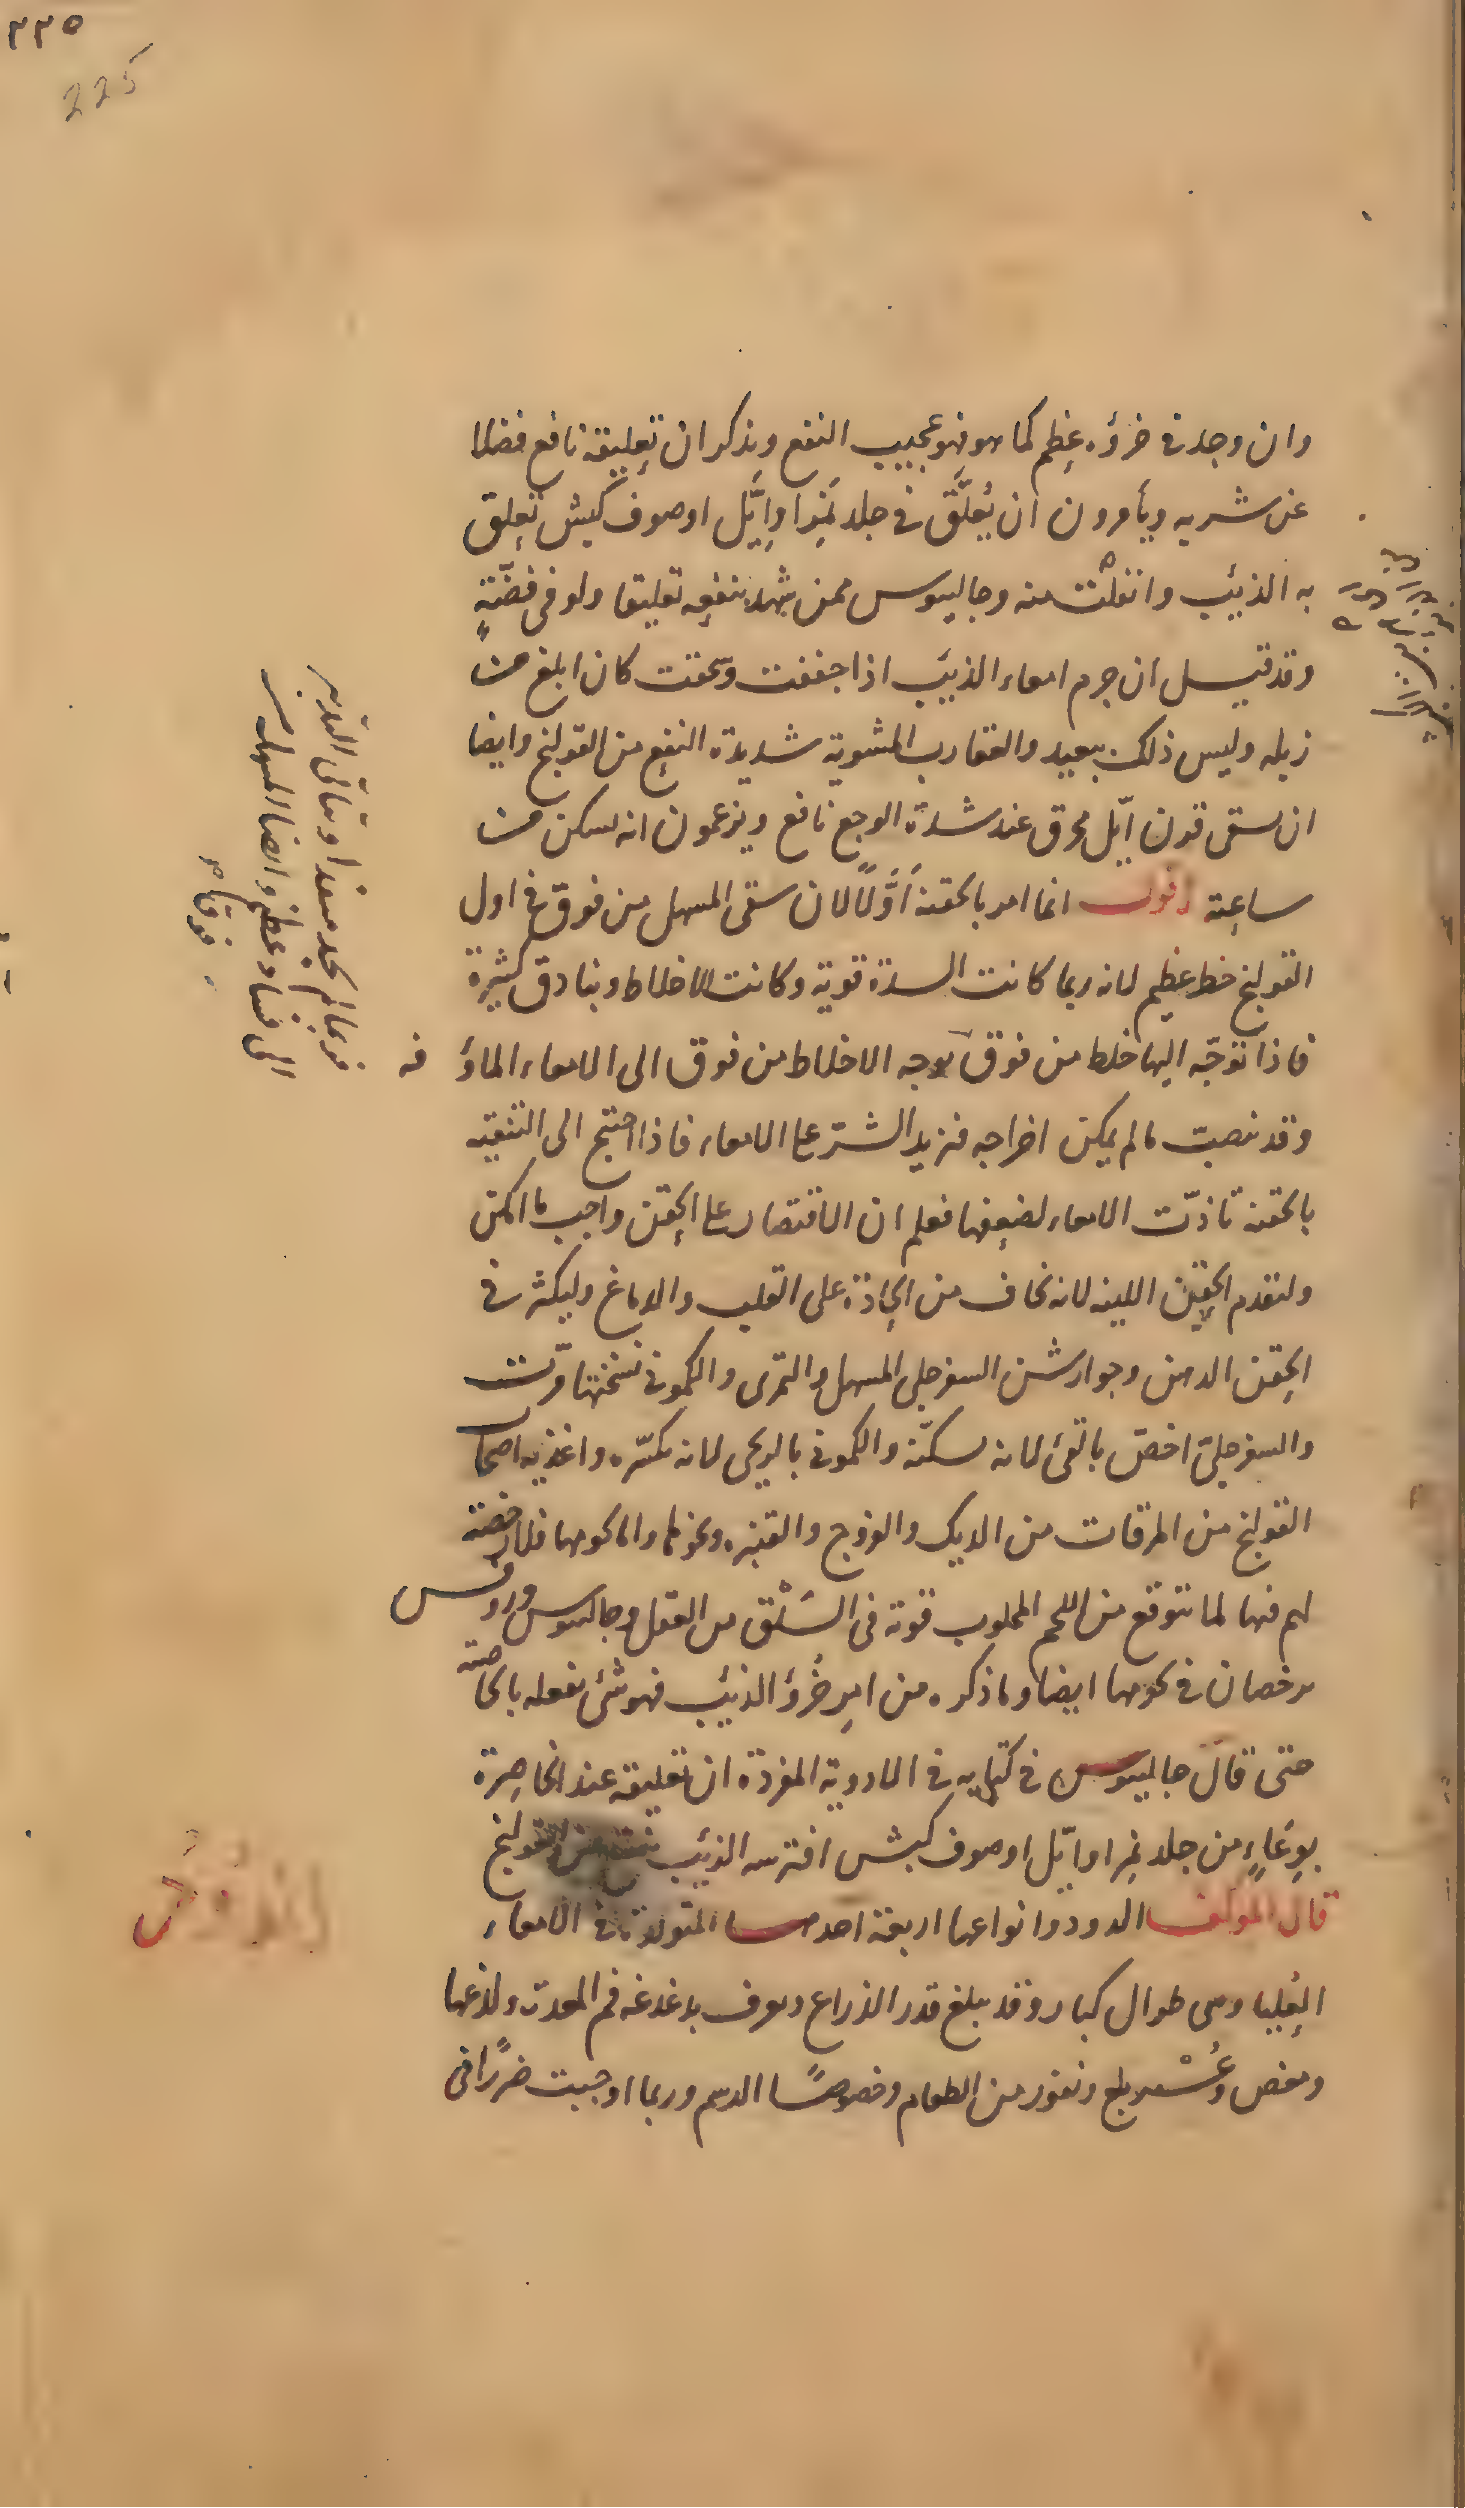 ٢٢٥
225
وان وجد في خرؤه عظم كما هو فهو عجيب النفع ويذكر ان تعليقه نافع فضلا
عن شربه ويأمرون ان يُعلَّق في جلد نمر او إيَّل او صوف كبش تعلق
به الذئب وانفلتت منه وجالينوس ممن يشهد بنفعه تعليقا ولو في فضّة
وقد قيل ان جرم امعاء الذئب اذا جففت وسحقت كان ابلغ من
زبله وليس ذلك ببعيد والعقارب المشوية شديدة النفع من القولنج وايضا
ان سقى قرن ايّل محرق عند شدة الوجع نافع ويزعمون انه يسكن من
ساعته اقول انما امر بالحقنة أوَّلًا لان سقى المسهل من فوق في اول
القولنج خطر عظيم لانه ربما كانت السدة قوية وكانت الاخلاط وبنادق كثيرة
فاذا توجّه اليها خلط من فوق توجه الاخلاط من فوق الى الامعاء الماؤفه
وقد تنصبّ ما لم يمكن اخراجه فتزيد الشرّ على الامعاء فاذا احتيج الى التنقيه
بالحقنه تاذّت الامعاء لضعفها فعلم ان الاقتصار على الحقن واجب ما امكن
ولتقدم الحقن اللينه لانه يخاف من الحادّة على القلب والدماغ وليكثر في
الحقن الدهن وجوارشن السفرجلى المسهل والتمرى والكمونى نسختها مرّت
والسفرجلىّ اخصّ بالقئ لانه يسكنه والكمونى بالريحى لانه يكسّره واغذيه اصحاب
القولنج من المرقات من الديك والفروج والقنبره ونحوها واما لحومها فلا رخصة
لهم فيها لما يتوقع من اللحم المسلوب قوته في السَّلْق من الثقل وجالينوس وروفس
يرخصان في لحومها ايضا وما ذكره من امر خُرؤ الذئب فهو شئ يفعله بالخاصيّة
حتى قال جالينوس في كتابه في الادوية المفردة ان تعليقه عند الخاصرة
بوِعَاءٍ من جلد نمر او ايّل او صوف كبش افترسه الذئب ينفع من القولنج
قال المؤلف الدود وانواعها اربعة احدها المتولدة في الامعاء
العُليا وهى طوال كبار وقد يبلغ قدر الذراع ويعرف بدغدغه فم المعدة ولذعها
ومغص وعُسْر بلع ونفور من الطعام وخصوصًا الدسم وربما اوجبت ضررًا في
فربما لم يجد منفذا وتأتى التدبير
الى فساد عظيم وايضا المسهل
من فوق